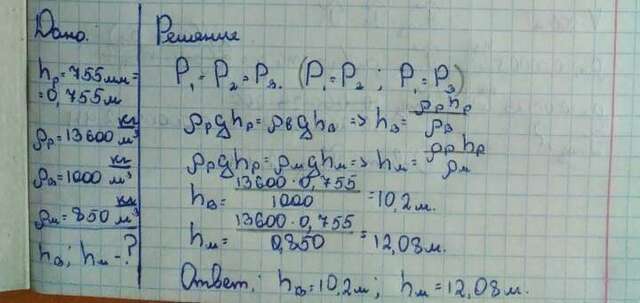 Дано.
hр = 755 мм =
= 0,755 м
ρр = 13600 кг/м³
ρв = 1000 кг/м³
ρм = 850 кг/м³
hв; hм - ?
Решение
P₁ = P₂ = P₃. (P₁ = P₂ ; P₁ = P₃)
ρрghр = ρвghв => hв = ρрhр/ρв
ρрghр = ρмghм => hм = ρрhр/ρм
hв = 13600 · 0,755/1000 = 10,2 м.
hм = 13600 · 0,755/0,850 = 12,08 м.
Ответ: hв = 10,2 м ; hм = 12,08 м.